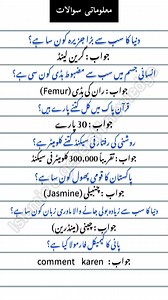 معلوماتی سوالات
دنیا کا سب سے بڑا جزیرہ کون سا ہے؟
جواب: گرین لینڈ
انسانی جسم میں سب سے مضبوط ہڈی کون سی ہے؟
جواب: ران کی ہڈی (Femur)
قرآن پاک میں کل کتنے پارے ہیں؟
جواب: 30 پارے
روشنی کی رفتار فی سیکنڈ کتنے کلومیٹر ہے؟
جواب: تقریباً 300,000 کلومیٹر فی سیکنڈ
پاکستان کا قومی پھول کون سا ہے؟
جواب: چنبیلی (Jasmine)
دنیا کا سب سے زیادہ بولی جانے والا مادری زبان کون سا ہے؟
جواب: چینی (مینڈرین)
پانی کا کیمیکل فارمولا کیا ہے؟
جواب: comment karen